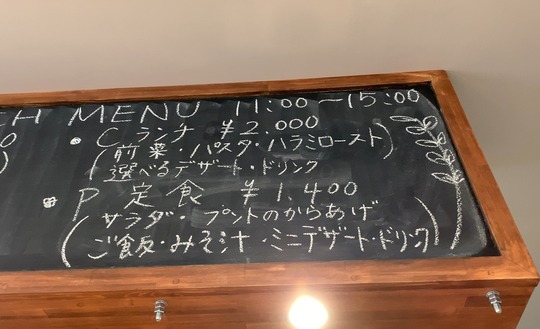 CH MENU 11:00〜15:00
・C ランチ ¥2.000
(前菜・パスタ・ハラミロースト)
選べるデザート・ドリンク
・P 定食 ¥1,400
(サラダ・プントのからあげ
ご飯・みそ汁・ミニデザート・ドリンク)